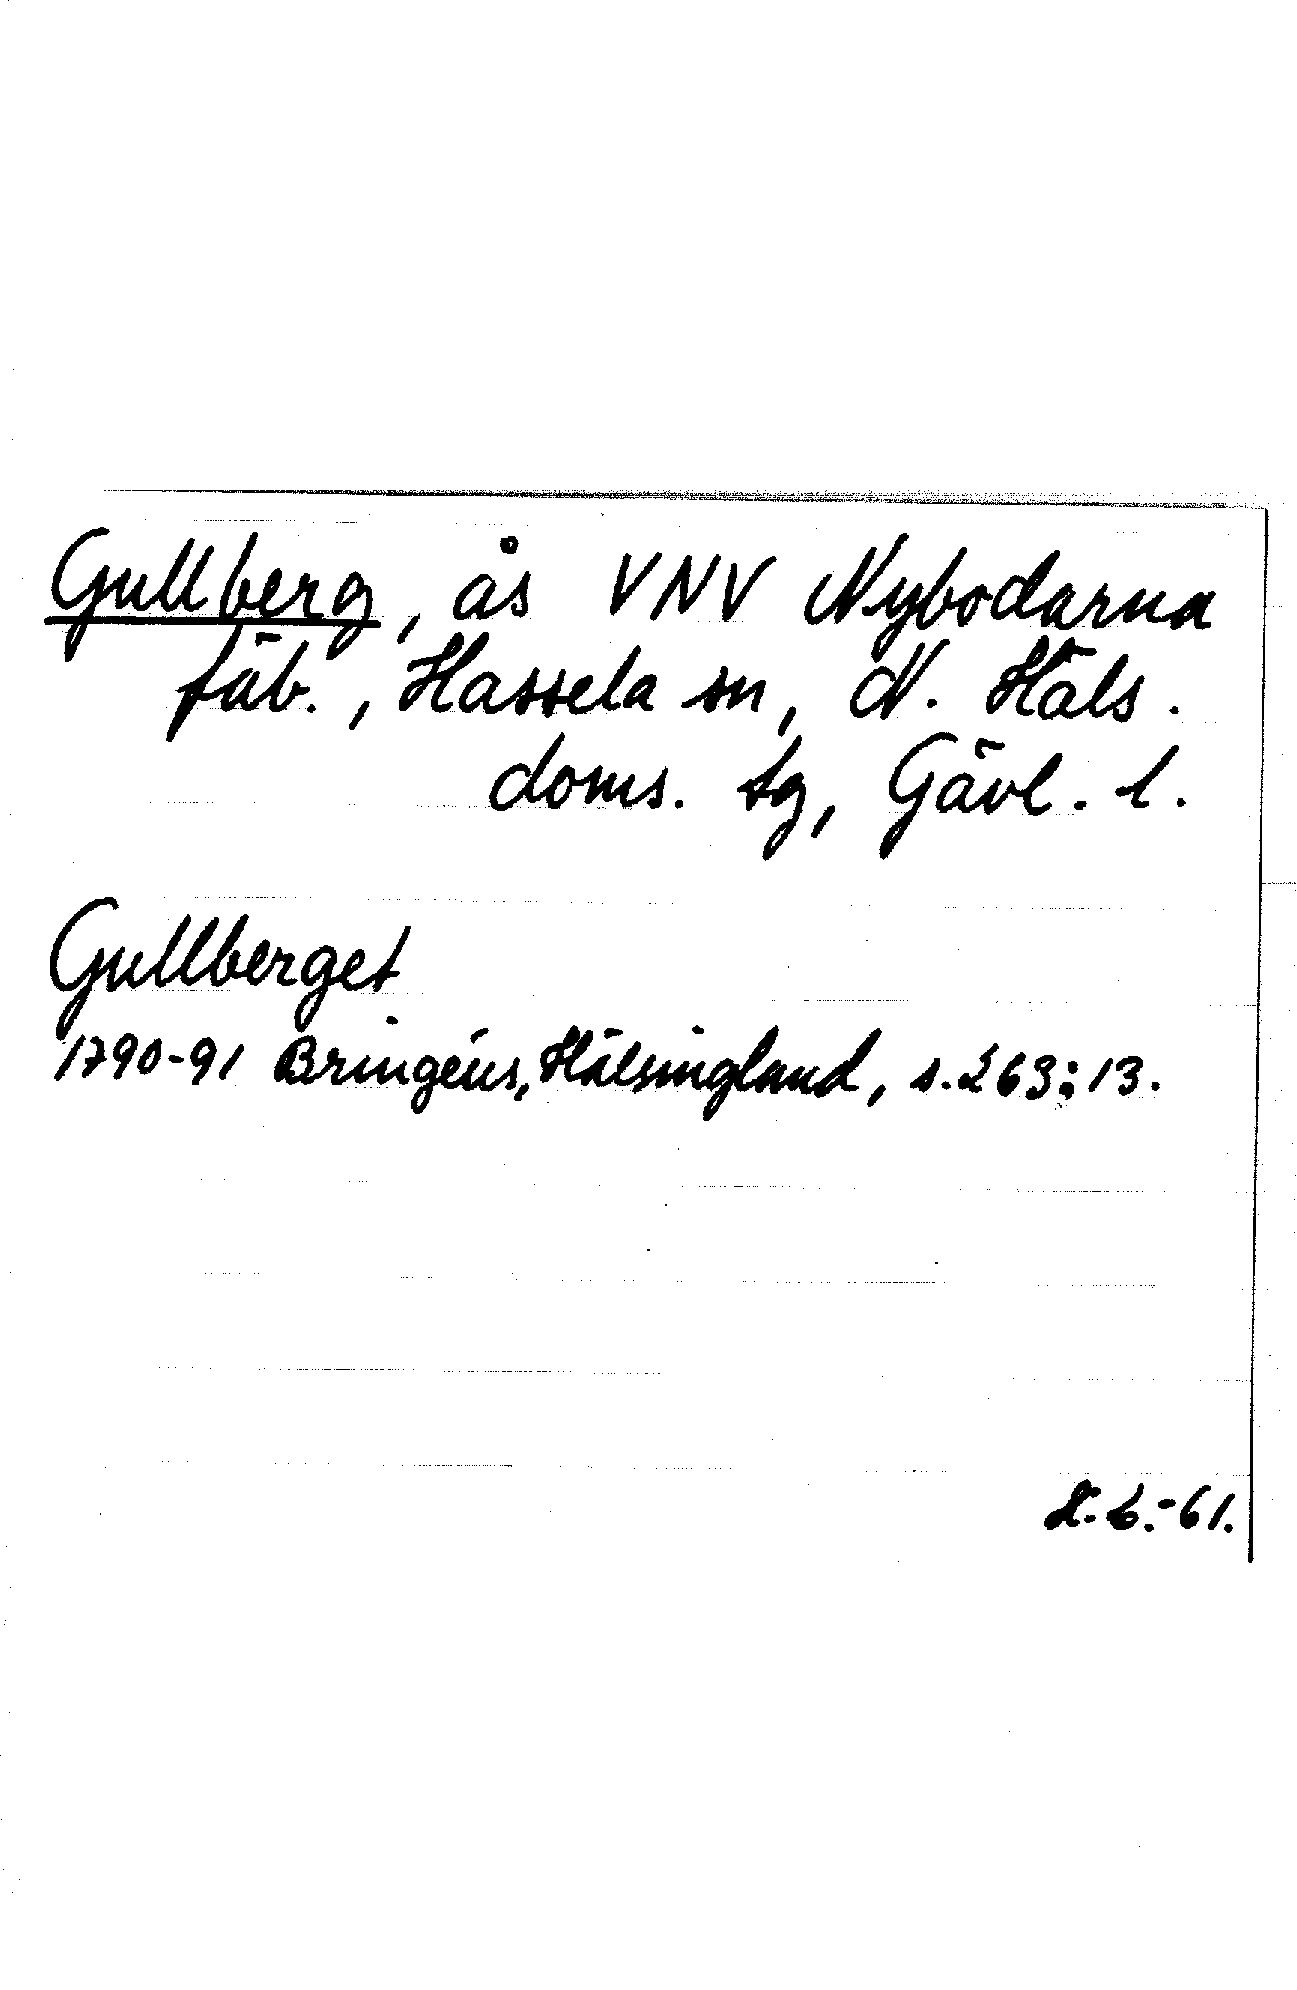 Gullberg, ås VNV Nybodarna
fäb., Hassela sn, N. Häls.
doms. tg, Gävl. l.
Gullberget
1790-91 Bringéus, Hälsingland, s. 263:13.
-61.